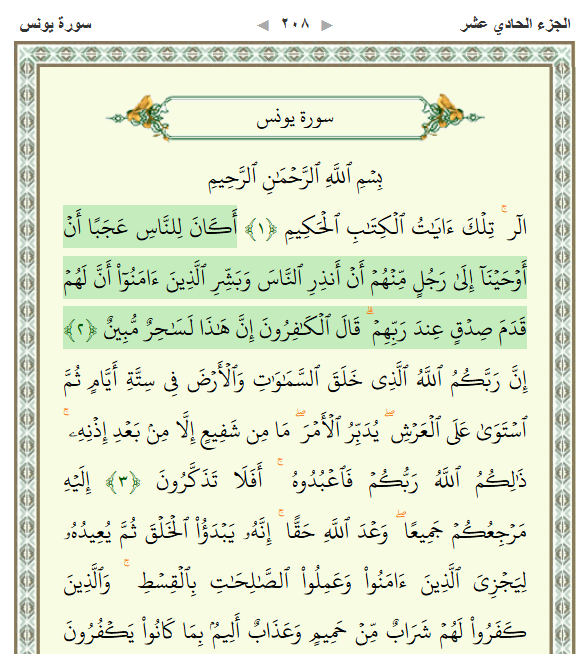 الجزء الحادي عشر ٢٠٨ سورة يونس
سورة يونس
بِسْمِ ٱللَّهِ ٱلرَّحْمَـٰنِ ٱلرَّحِيمِ
الٓر ۚ تِلْكَ ءَايَـٰتُ ٱلْكِتَـٰبِ ٱلْحَكِيمِ ﴿١﴾ أَكَانَ لِلنَّاسِ عَجَبًا أَنْ
أَوْحَيْنَآ إِلَىٰ رَجُلٍ مِّنْهُمْ أَنْ أَنذِرِ ٱلنَّاسَ وَبَشِّرِ ٱلَّذِينَ ءَامَنُوٓا۟ أَنَّ لَهُمْ
قَدَمَ صِدْقٍ عِندَ رَبِّهِمْ ۗ قَالَ ٱلْكَـٰفِرُونَ إِنَّ هَـٰذَا لَسَـٰحِرٌ مُّبِينٌ ﴿٢﴾
إِنَّ رَبَّكُمُ ٱللَّهُ ٱلَّذِى خَلَقَ ٱلسَّمَـٰوَٰتِ وَٱلْأَرْضَ فِى سِتَّةِ أَيَّامٍ ثُمَّ
ٱسْتَوَىٰ عَلَى ٱلْعَرْشِ ۖ يُدَبِّرُ ٱلْأَمْرَ ۖ مَا مِن شَفِيعٍ إِلَّا مِنۢ بَعْدِ إِذْنِهِۦ ۚ
ذَٰلِكُمُ ٱللَّهُ رَبُّكُمْ فَٱعْبُدُوهُ ۚ أَفَلَا تَذَكَّرُونَ ﴿٣﴾ إِلَيْهِ
مَرْجِعُكُمْ جَمِيعًا ۖ وَعْدَ ٱللَّهِ حَقًّا ۚ إِنَّهُۥ يَبْدَؤُا۟ ٱلْخَلْقَ ثُمَّ يُعِيدُهُۥ
لِيَجْزِىَ ٱلَّذِينَ ءَامَنُوا۟ وَعَمِلُوا۟ ٱلصَّـٰلِحَـٰتِ بِٱلْقِسْطِ ۚ وَٱلَّذِينَ
كَفَرُوا۟ لَهُمْ شَرَابٌ مِّنْ حَمِيمٍ وَعَذَابٌ أَلِيمٌۢ بِمَا كَانُوا۟ يَكْفُرُونَ